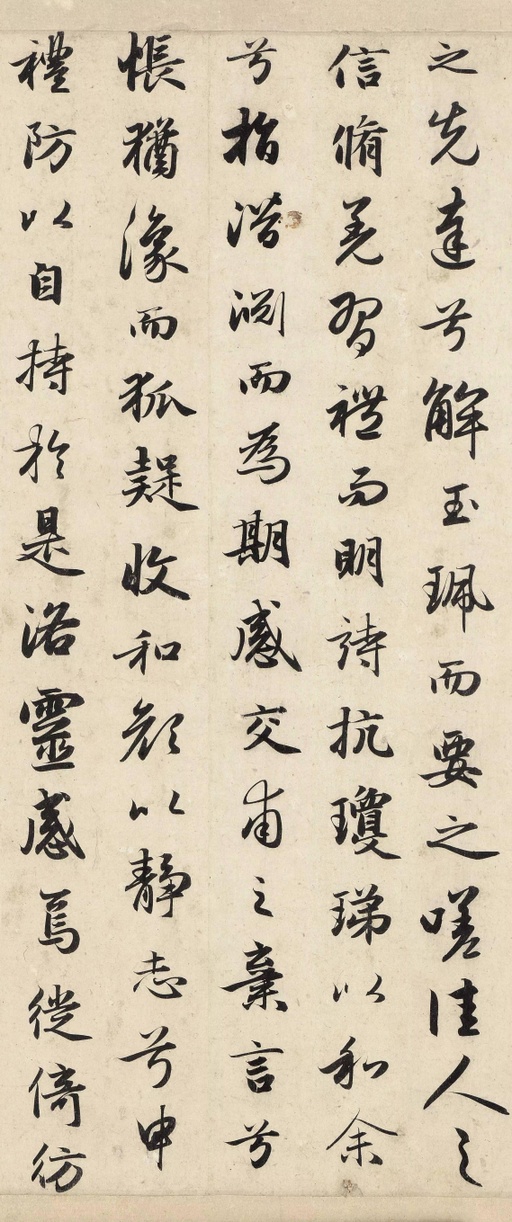 之先達兮解玉珮而要之嗟佳人之
信脩羌習禮而明詩抗瓊珶以和余
兮指潛淵而為期感交甫之棄言兮
悵猶𧰼而狐疑收和顏以靜志兮申
禮防以自持於是洛靈感焉徙倚彷